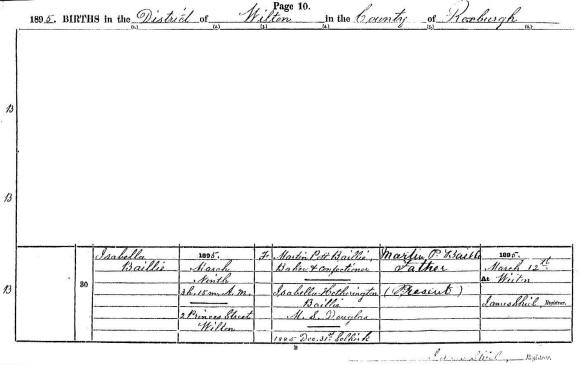 Page 10.
1895. BIRTHS in the District of Wilton in the County of Roxburgh
(1.) (2.) (3.) (4.) (5.) (6.)
B
B
B
30
Isabella
Baillie
1895.
March
Ninth
3h. 15m A.M.
2 Princes Street
Wilton
F.
Martin Pott Baillie,
Baker & Confectioner
Isabella Hetherington
Baillie
M. S. Douglas
1885 Dec. 31st Selkirk
Martin P. Baillie
Father
(Present)
1895.
March 12th
At Wilton
Registrar.
Registrar.